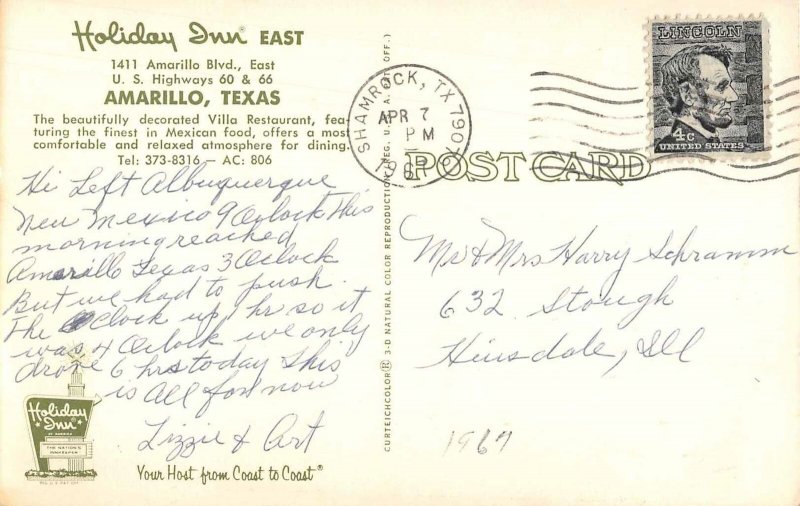 Holiday Inn® EAST
1411 Amarillo Blvd., East
U. S. Highways 60 & 66
AMARILLO, TEXAS
The beautifully decorated Villa Restaurant, fea-
turing the finest in Mexican food, offers a most
comfortable and relaxed atmosphere for dining.
Tel: 373-8316 — AC: 806
Hi Left Albuquerque
New Mexico 9 Oclock This
morning reached
Amarillo Texas 3 Oclock
But we had to push
The Clock up 1 hr so it
was 4 Oclock we only
drove 6 hrs today This
is All for now
Lizzie & Art
Holiday
Inn®
OF AMERICA
THE NATION'S
INNKEEPER
Your Host from Coast to Coast®
CURTEICHCOLOR® 3-D NATURAL COLOR REPRODUCTION (REG. U.S.A. PAT. OFF.)
SHAMROCK, TX 790
APR 7
PM
POST CARD
LINCOLN
4c
UNITED STATES
Mr & Mrs Harry Schramm
632 Stough
Hinsdale, Ill
1967